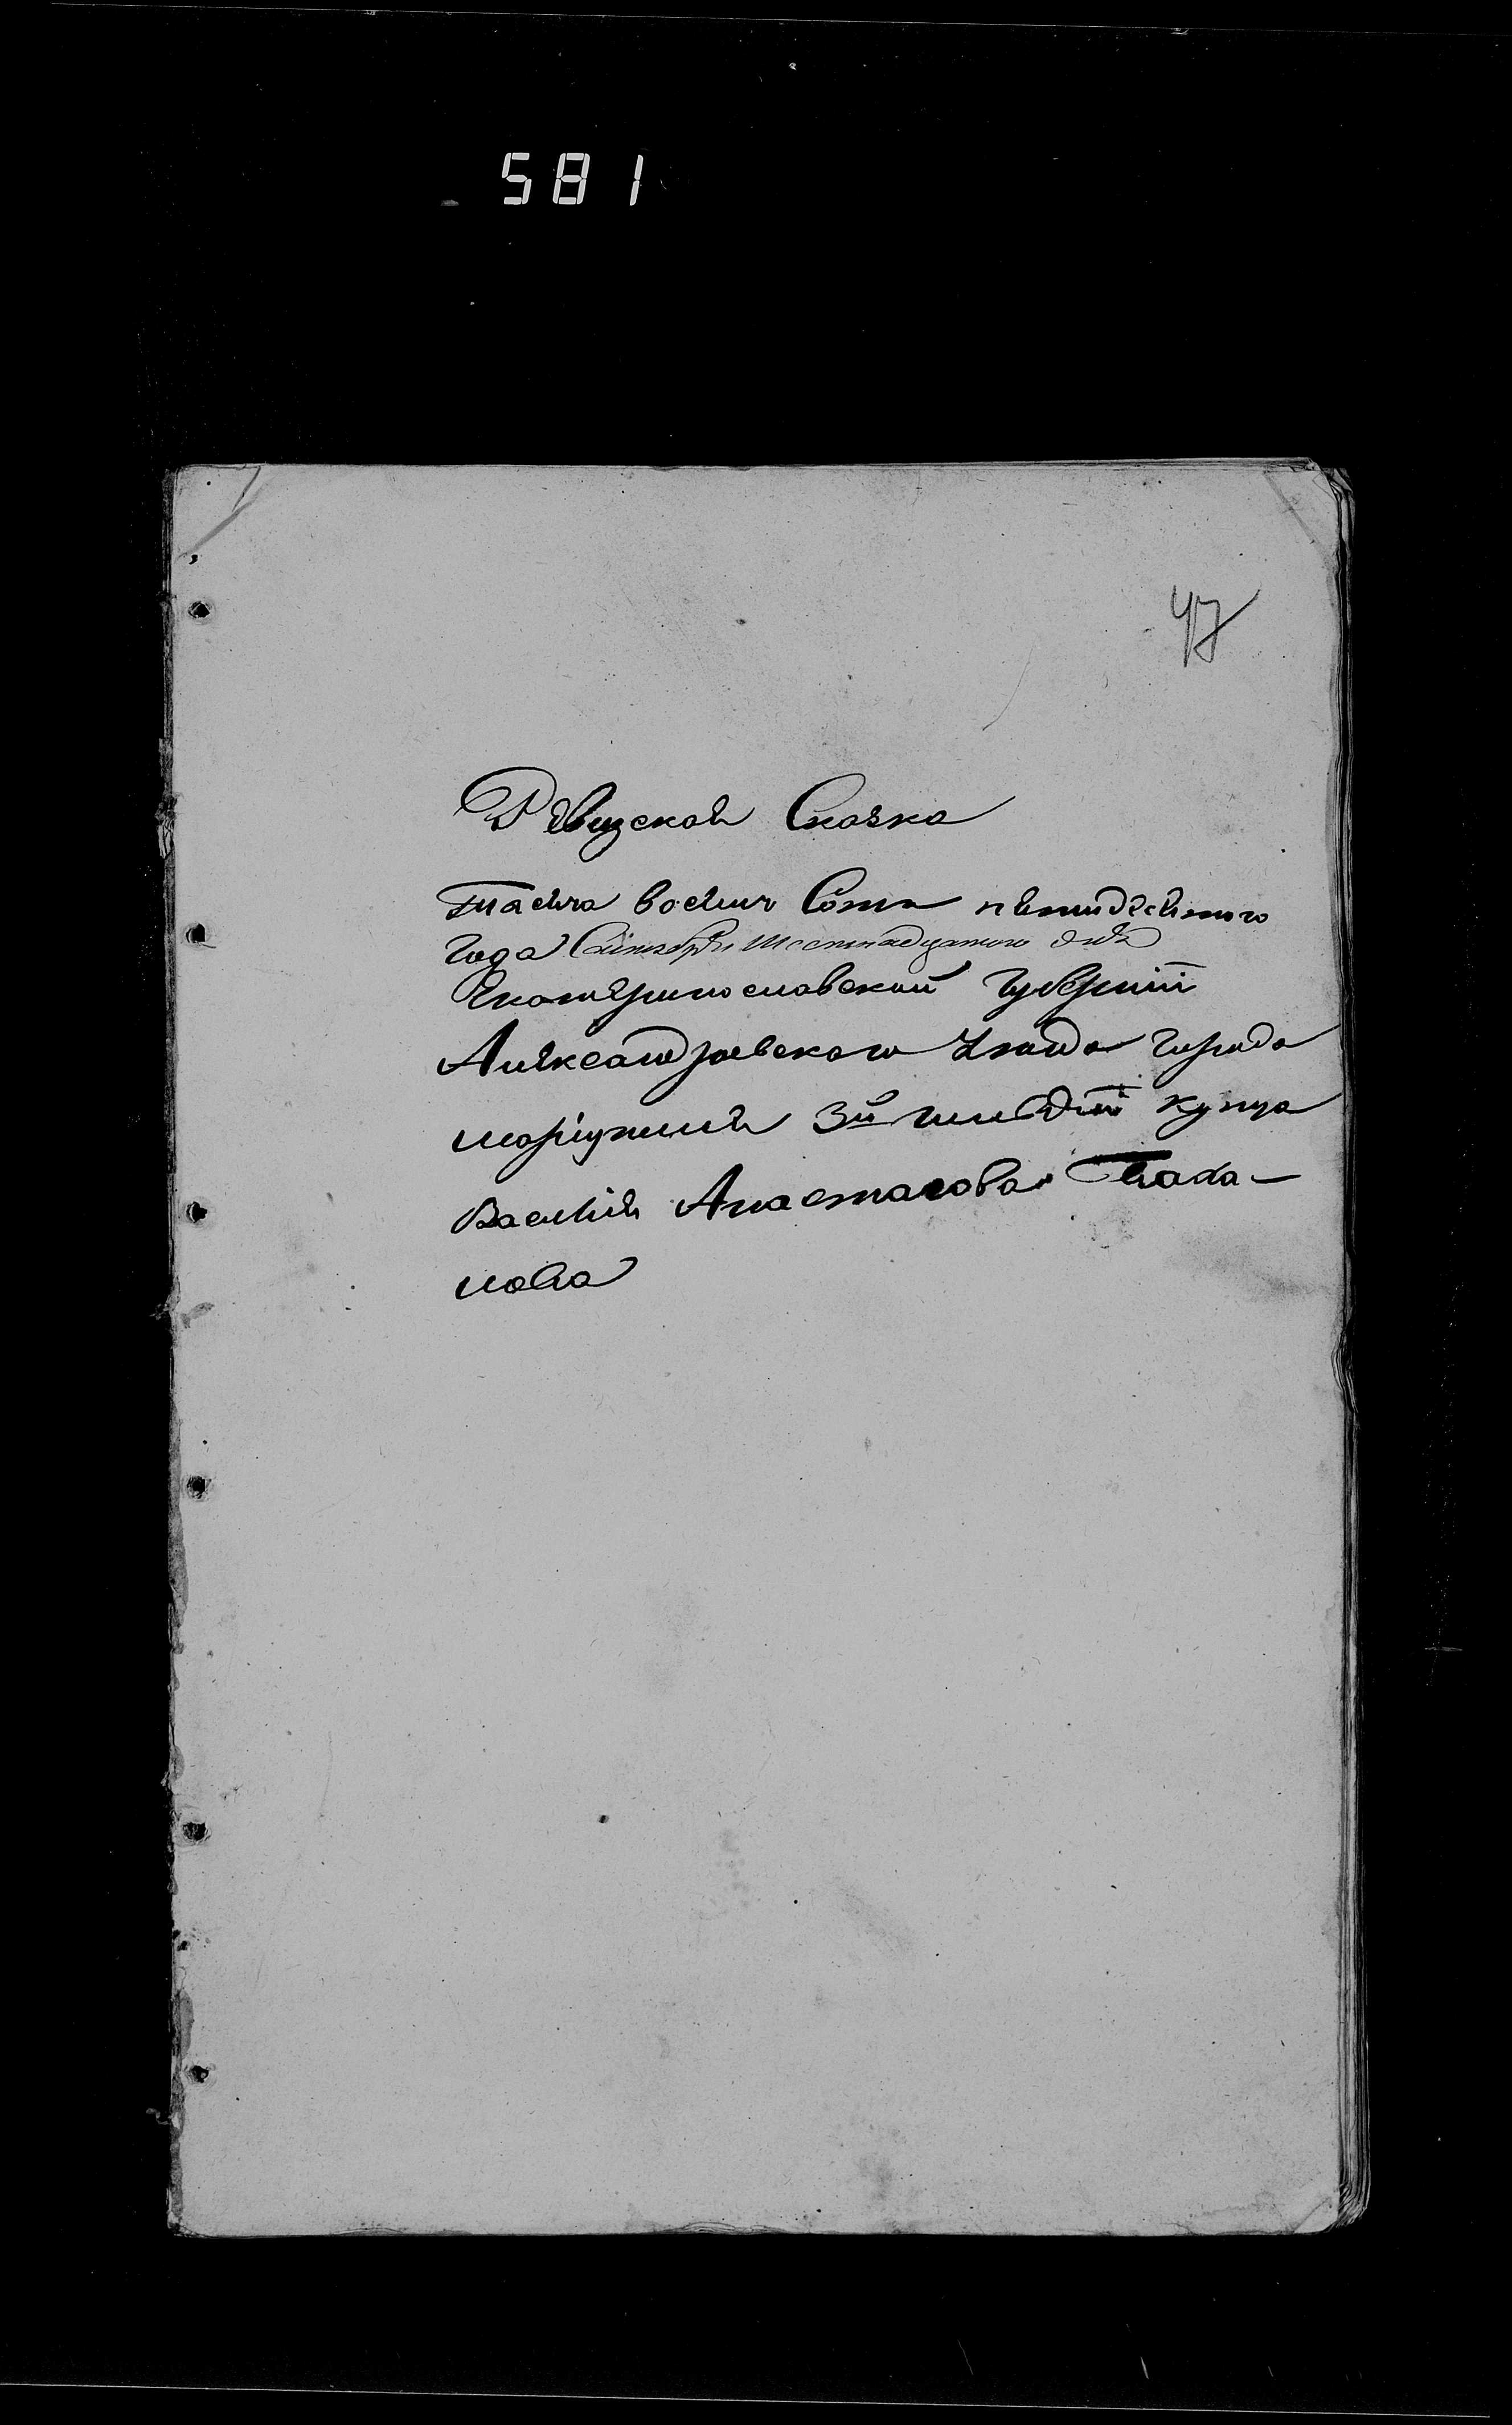 581
47
Ревизская Сказка
Тысяча восемь Сотъ пятидесятого
года Сентября Шестнадцатого дня
Екатеринославской Губернiи
Александровского Уезда города
марiуполя 3й гилдiи купца
Василiя Анастасова